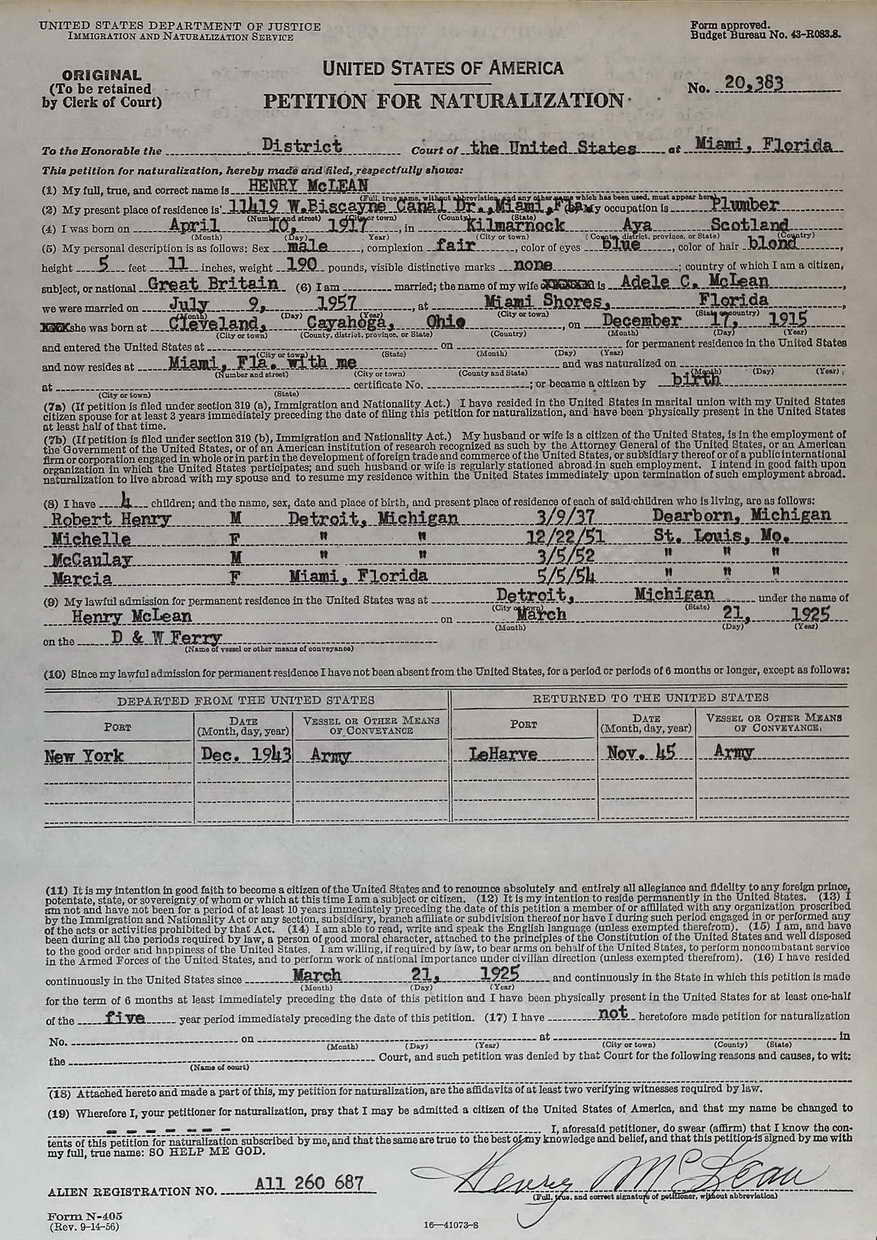 UNITED STATES DEPARTMENT OF JUSTICE
IMMIGRATION AND NATURALIZATION SERVICE
Form approved.
Budget Bureau No. 43-R083.8.
ORIGINAL
(To be retained
by Clerk of Court)
UNITED STATES OF AMERICA
PETITION FOR NATURALIZATION
No. 20,383
To the Honorable the District Court of the United States at Miami, Florida
This petition for naturalization, hereby made and filed, respectfully shows:
(1) My full, true, and correct name is HENRY McLEAN
(Full, true name, without abbreviation, and any other name which has been used, must appear here)
(2) My present place of residence is 11419 W.Biscayne Canal Dr.,Miami,Fla. My occupation is Plumber
(Number and street) (City or town) (County) (State)
(4) I was born on April 10, 1917, in Kilmarnock Aya Scotland
(Month) (Day) Year) (City or town) (County, district, province, or State) (Country)
(5) My personal description is as follows: Sex male, complexion fair, color of eyes blue, color of hair blond,
height 5 feet 11 inches, weight 190 pounds, visible distinctive marks none; country of which I am a citizen,
subject, or national Great Britain (6) I am married; the name of my wife is Adele C. McLean,
we were married on July 9, 1957, at Miami Shores, Florida,
(Month) (Day) (Year) (City or town) (State or country)
she was born at Cleveland, Cayahoga, Ohio, on December 17, 1915
(City or town) (County, district, province, or State) (Country) (Month) (Day) (Year)
and entered the United States at on for permanent residence in the United States
(City or town) (State) (Month) (Day) (Year)
and now resides at Miami, Fla. with me and was naturalized on
(Number and street) (City or town) (County and State) (Month) (Day) (Year),
at certificate No. ; or became a citizen by birth
(City or town) (State)
(7a) (If petition is filed under section 319 (a), Immigration and Nationality Act.) I have resided in the United States in marital union with my United States
citizen spouse for at least 3 years immediately preceding the date of filing this petition for naturalization, and have been physically present in the United States
at least half of that time.
(7b) (If petition is filed under section 319 (b), Immigration and Nationality Act.) My husband or wife is a citizen of the United States, is in the employment of
the Government of the United States, or of an American institution of research recognized as such by the Attorney General of the United States, or an American
firm or corporation engaged in whole or in part in the development of foreign trade and commerce of the United States, or subsidiary thereof or of a public international
organization in which the United States participates; and such husband or wife is regularly stationed abroad in such employment. I intend in good faith upon
naturalization to live abroad with my spouse and to resume my residence within the United States immediately upon termination of such employment abroad.
(8) I have 4 children; and the name, sex, date and place of birth, and present place of residence of each of said children who is living, are as follows:
Robert Henry M Detroit, Michigan 3/9/37 Dearborn, Michigan
Michelle F " " 12/22/51 St. Louis, Mo.
McCaulay M " " 3/5/52 " " "
Marcia F Miami, Florida 5/5/54 " " "
(9) My lawful admission for permanent residence in the United States was at Detroit, Michigan under the name of
(City or town) (State)
Henry McLean on March 21, 1925
(Month) (Day) (Year)
on the D & W Ferry
(Name of vessel or other means of conveyance)
(10) Since my lawful admission for permanent residence I have not been absent from the United States, for a period or periods of 6 months or longer, except as follows:
DEPARTED FROM THE UNITED STATES RETURNED TO THE UNITED STATES
PORT DATE (Month, day, year) VESSEL OR OTHER MEANS OF CONVEYANCE PORT DATE (Month, day, year) VESSEL OR OTHER MEANS OF CONVEYANCE
New York Dec. 1943 Army LeHarve Nov. 45 Army
(11) It is my intention in good faith to become a citizen of the United States and to renounce absolutely and entirely all allegiance and fidelity to any foreign prince,
potentate, state, or sovereignty of whom or which at this time I am a subject or citizen. (12) It is my intention to reside permanently in the United States. (13) I
am not and have not been for a period of at least 10 years immediately preceding the date of this petition a member of or affiliated with any organization proscribed
by the Immigration and Nationality Act or any section, subsidiary, branch affiliate or subdivision thereof nor have I during such period engaged in or performed any
of the acts or activities prohibited by that Act. (14) I am able to read, write and speak the English language (unless exempted therefrom). (15) I am, and have
been during all the periods required by law, a person of good moral character, attached to the principles of the Constitution of the United States and well disposed
to the good order and happiness of the United States. I am willing, if required by law, to bear arms on behalf of the United States, to perform noncombatant service
in the Armed Forces of the United States, and to perform work of national importance under civilian direction (unless exempted therefrom). (16) I have resided
continuously in the United States since March 21, 1925 and continuously in the State in which this petition is made
(Month) (Day) (Year)
for the term of 6 months at least immediately preceding the date of this petition and I have been physically present in the United States for at least one-half
of the five year period immediately preceding the date of this petition. (17) I have not heretofore made petition for naturalization
No. on at in
(Month) (Day) (Year) (City or town) (County) (State)
the Court, and such petition was denied by that Court for the following reasons and causes, to wit:
(Name of court)
(18) Attached hereto and made a part of this, my petition for naturalization, are the affidavits of at least two verifying witnesses required by law.
(19) Wherefore I, your petitioner for naturalization, pray that I may be admitted a citizen of the United States of America, and that my name be changed to
– – – – – – – I, aforesaid petitioner, do swear (affirm) that I know the con-
tents of this petition for naturalization subscribed by me, and that the same are true to the best of my knowledge and belief, and that this petition is signed by me with
my full, true name: SO HELP ME GOD.
Henry McLean
(Full, true, and correct signature of petitioner, without abbreviation)
ALIEN REGISTRATION NO. A11 260 687
Form N-405
(Rev. 9-14-56)
16—41073-8